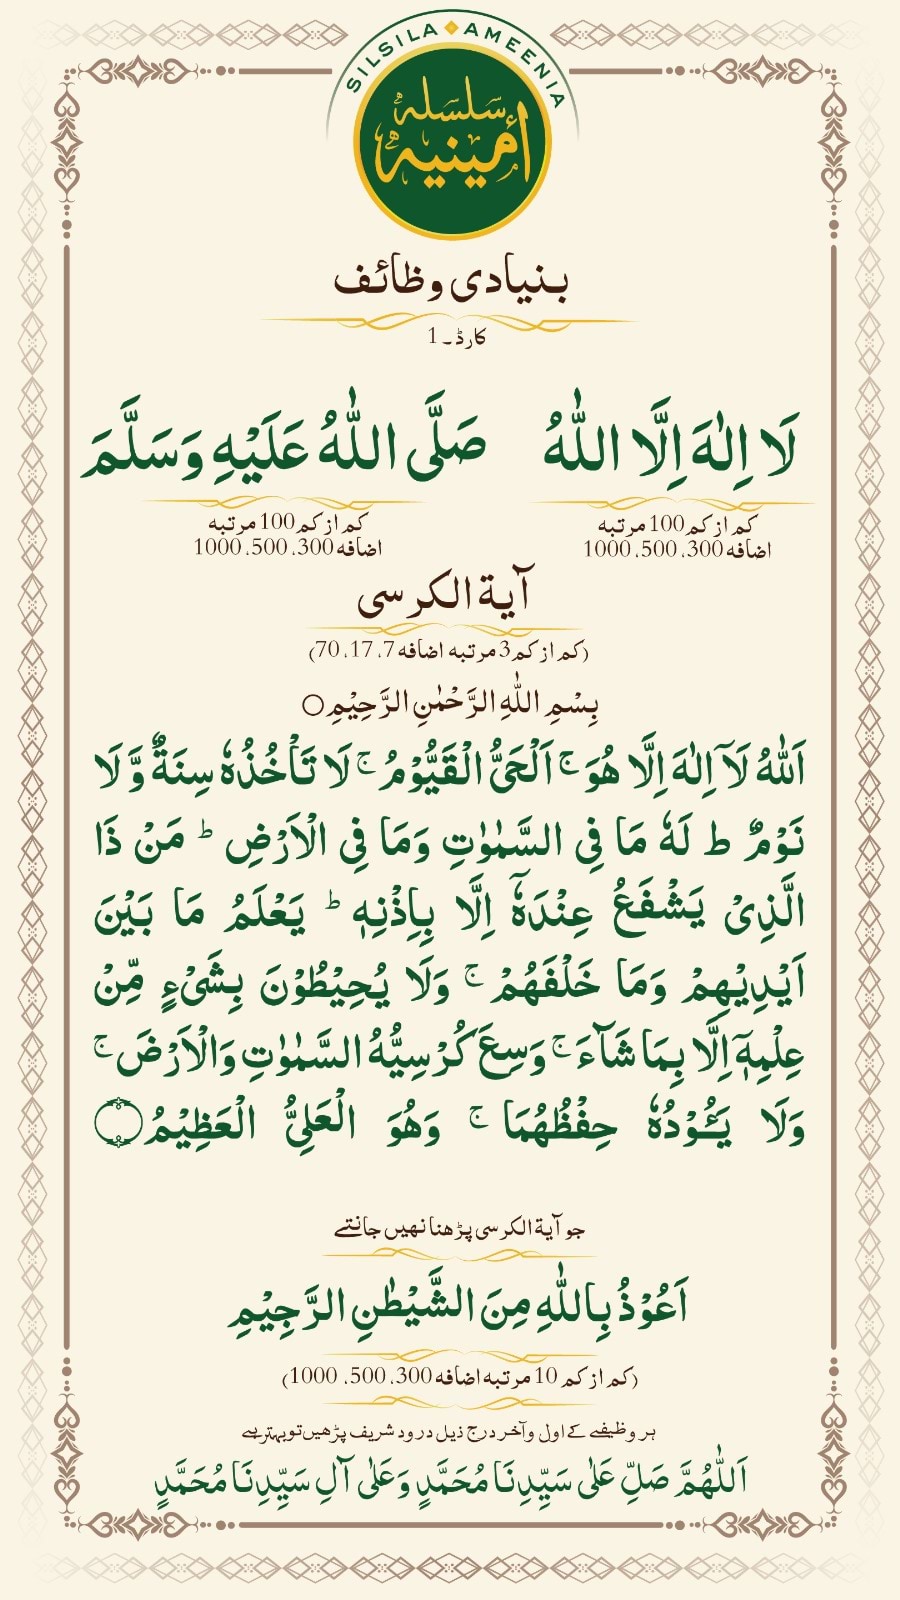 SILSILA AMEENIA
سلسلہ
أمینیہ
بنیادی وظائف
کارڈ۔ 1
لَا اِلٰهَ اِلَّا اللّٰهُ
کم از کم 100 مرتبہ
اضافہ 300، 500، 1000
صَلَّى اللّٰهُ عَلَيْهِ وَسَلَّمَ
کم از کم 100 مرتبہ
اضافہ 300، 500، 1000
آیة الکرسی
(کم از کم 3 مرتبہ اضافہ 7، 17، 70)
بِسْمِ اللّٰهِ الرَّحْمٰنِ الرَّحِيْمِ○
اَللّٰهُ لَآ اِلٰهَ اِلَّا هُوَ ۚ اَلْحَىُّ الْقَيُّوْمُ ۚ لَا تَاْخُذُهٗ سِنَةٌ وَّ لَا
نَوْمٌ ط لَهٗ مَا فِى السَّمٰوٰتِ وَمَا فِى الْاَرْضِ ؕ مَنْ ذَا
الَّذِىْ يَشْفَعُ عِنْدَهٗٓ اِلَّا بِاِذْنِهٖ ؕ يَعْلَمُ مَا بَيْنَ
اَيْدِيْهِمْ وَمَا خَلْفَهُمْ ۚ وَلَا يُحِيْطُوْنَ بِشَىْءٍ مِّنْ
عِلْمِهٖٓ اِلَّا بِمَا شَآءَ ۚ وَسِعَ كُرْسِيُّهُ السَّمٰوٰتِ وَالْاَرْضَ ۚ
وَلَا يَـُٔوْدُهٗ حِفْظُهُمَا ۚ وَهُوَ الْعَلِىُّ الْعَظِيْمُ ۝
جو آیة الکرسی پڑھنا نہیں جانتے
اَعُوْذُ بِاللّٰهِ مِنَ الشَّيْطٰنِ الرَّجِيْمِ
(کم از کم 10 مرتبہ اضافہ 300، 500، 1000)
ہر وظیفے کے اول و آخر درج ذیل درود شریف پڑھیں تو بہتر ہے
اَللّٰهُمَّ صَلِّ عَلٰى سَيِّدِنَا مُحَمَّدٍ وَعَلٰى آلِ سَيِّدِنَا مُحَمَّدٍ